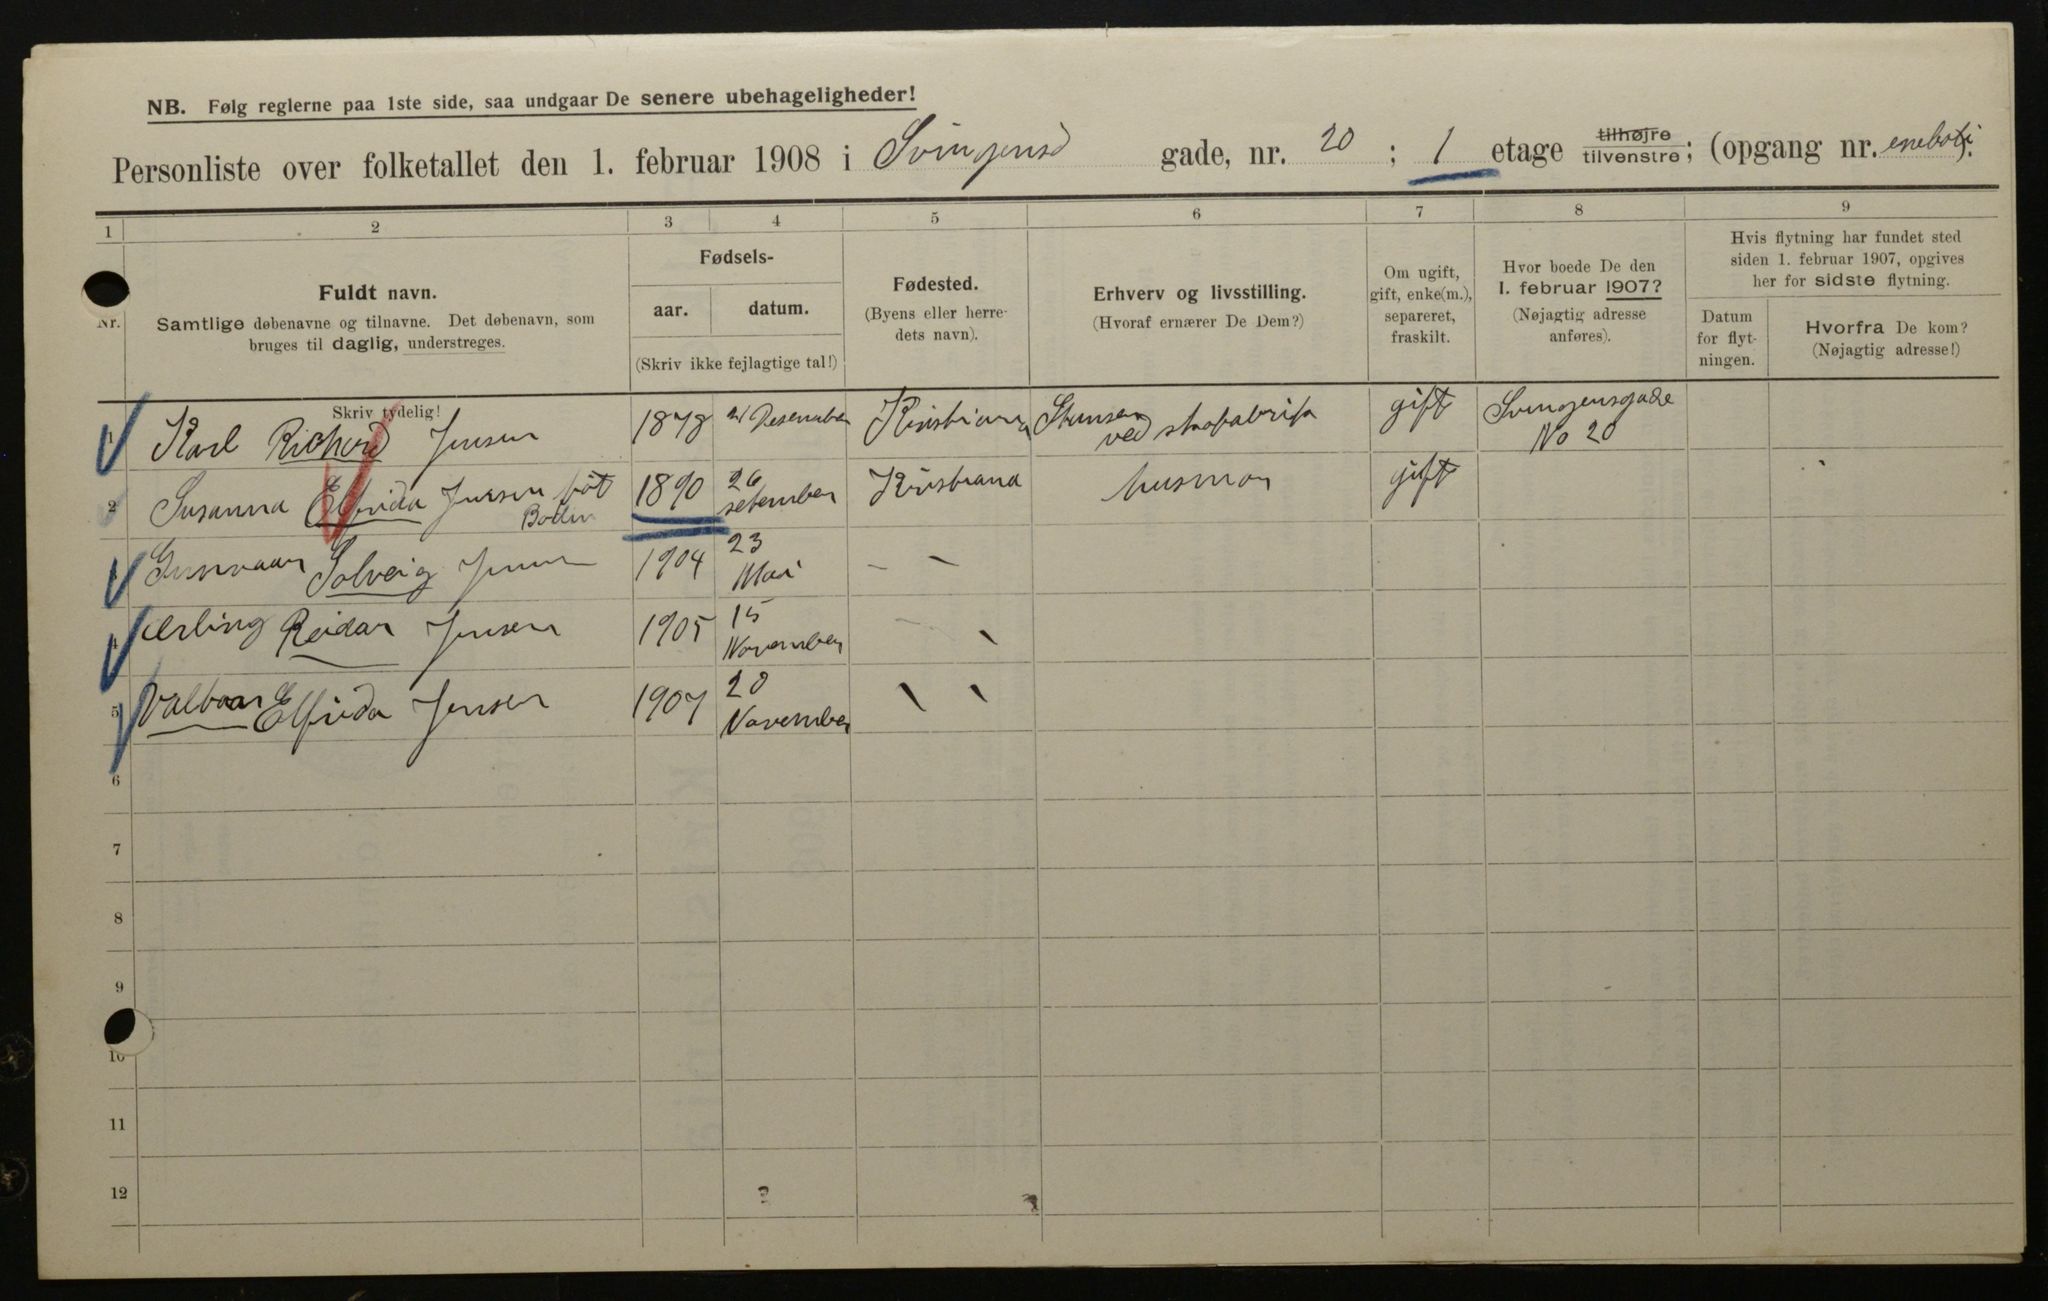 NB. Følg reglerne paa 1ste side, saa undgaar De senere ubehageligheder!
Personliste over folketallet den 1. februar 1908 i Svingensd gade, nr. 20 ; 1 etage tilhøjre tilvenstre; (opgang nr. eneboti).
1 2 3 4 5 6 7 8 9
Nr.
Fuldt navn.
Samtlige døbenavne og tilnavne. Det døbenavn, som
bruges til daglig, understreges.
Skriv tydelig!
Fødsels-
aar. datum.
(Skriv ikke fejlagtige tal!)
Fødested.
(Byens eller herre-
dets navn).
Erhverv og livsstilling.
(Hvoraf ernærer De Dem?)
Om ugift,
gift, enke(m.),
separeret,
fraskilt.
Hvor boede De den
1. februar 1907?
(Nøjagtig adresse
anføres).
Hvis flytning har fundet sted
siden 1. februar 1907, opgives
her for sidste flytning.
Datum
for flyt-
ningen.
Hvorfra De kom?
(Nøjagtig adresse!)
1 Karl Richard Jensen 1878 21 Desember Kristiania Stanser ved skofabrik gift Svingensgade No 20
2 Susanna Elfrida Jensen föt Bodin 1890 26 setember Kristiana husmor gift
Gunvaar Solveig Jensen 1904 23 Mai
4 Erling Reidar Jensen 1905 15 November
5 Valbaar Elfrida Jensen 1907 20 November
6
7
8
9
10
11
12